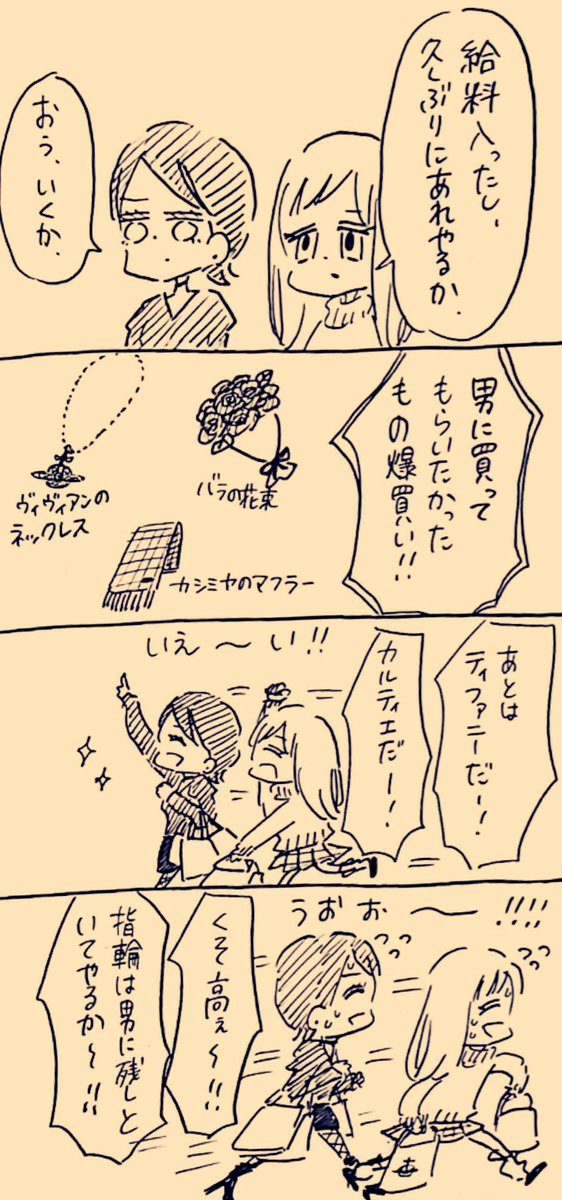 給料入ったし、
久しぶりにあれやるか.
おう、いくか.
男に買って
もらいたかった
もの爆買い!!
バラの花束
ヴィヴィアンの
ネックレス
カシミヤのマフラー
あとは
ティファニーだー!
カルティエだー!
いえ〜い!!
うおお〜!!!!
くそ高ぇ〜!!
指輪は男に残しと
いてやるか〜!!